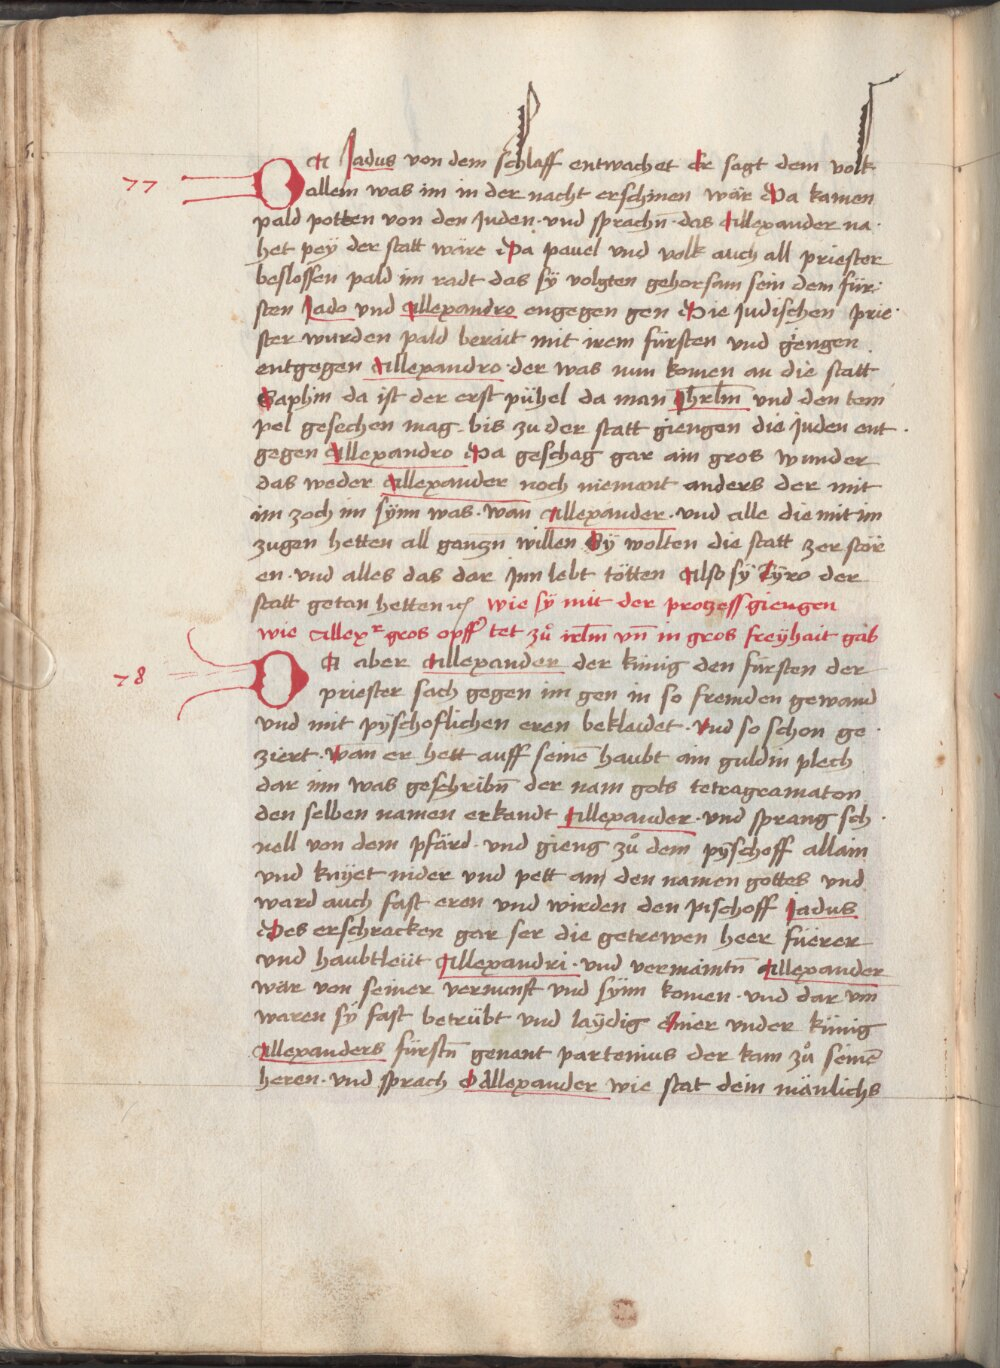 77
DA Jadus von dem schlaff entwachet Er sagt dem volk
allem was im in der nacht erschinen wär Da kamen
pald potten von den Juden · und sprachn̄ · das Allexander na ·
het pey der statt wäre Da pauel und volk auch all priester
beslossen pald im radt das sÿ volgten gehorsam sein dem für·
sten Jado und Allexandro engegen gen Die Judischen prie·
ster wurden pald berait mit irem fürsten und giengen
entgegen Allexandro · der was nun komen an die statt
Saphin da ist der erst pühel da man Jhrlm̄ und den tem
pel gesechen mag · bis zu der statt giengen die Juden ent ·
gegen Allexandro Da geschag gar ain gros wunder
das weder Allexander noch niemant anders der mit
im zoch im sÿnn was · wan Allexander · und alle die mit im
zugen hetten all ganczn willen Sÿ wolten die statt zerstör
en · und alles das dar Jnn lebt tötten Also sÿ Tÿro der
statt getan hetten ꝛc̄ wie sÿ mit der proczess giengen
wie Allexr gros opffr tet zů irlm̄ vn̄ in gros freÿhait gab
78
DA aber Allexander der künig den fürsten der
priester sach gegen im gen in so fremden gewand
und mit pÿschoflichen eren beklaidet · Vnd so schon ge ·
ziert · Wan er hett auff seinē haubt ain guldin plech
dar inn was geschribn̄ der nam gots tetragramaton
den selben namen erkandt Allexander · und sprang sch ·
nell von dem pfärd · und gieng zů dem pÿschoff allain
und knÿet nider und pett an den namen gottes und
ward auch fast eren und wirden den pischoff Jadus
Des erschracken gar ser die getrewen heer füerer
und haubtleüt Allexandri · und vermaintn̄ Allexander
wär von seiner vernunft und sÿnn komen · und dar um
waren sÿ fast betrübt und laÿdig Ainer under künig
Allexanders fürstn̄ genant partenius der kam zů seinē
heren · und sprach O Allexander wie stat dein mänlichs